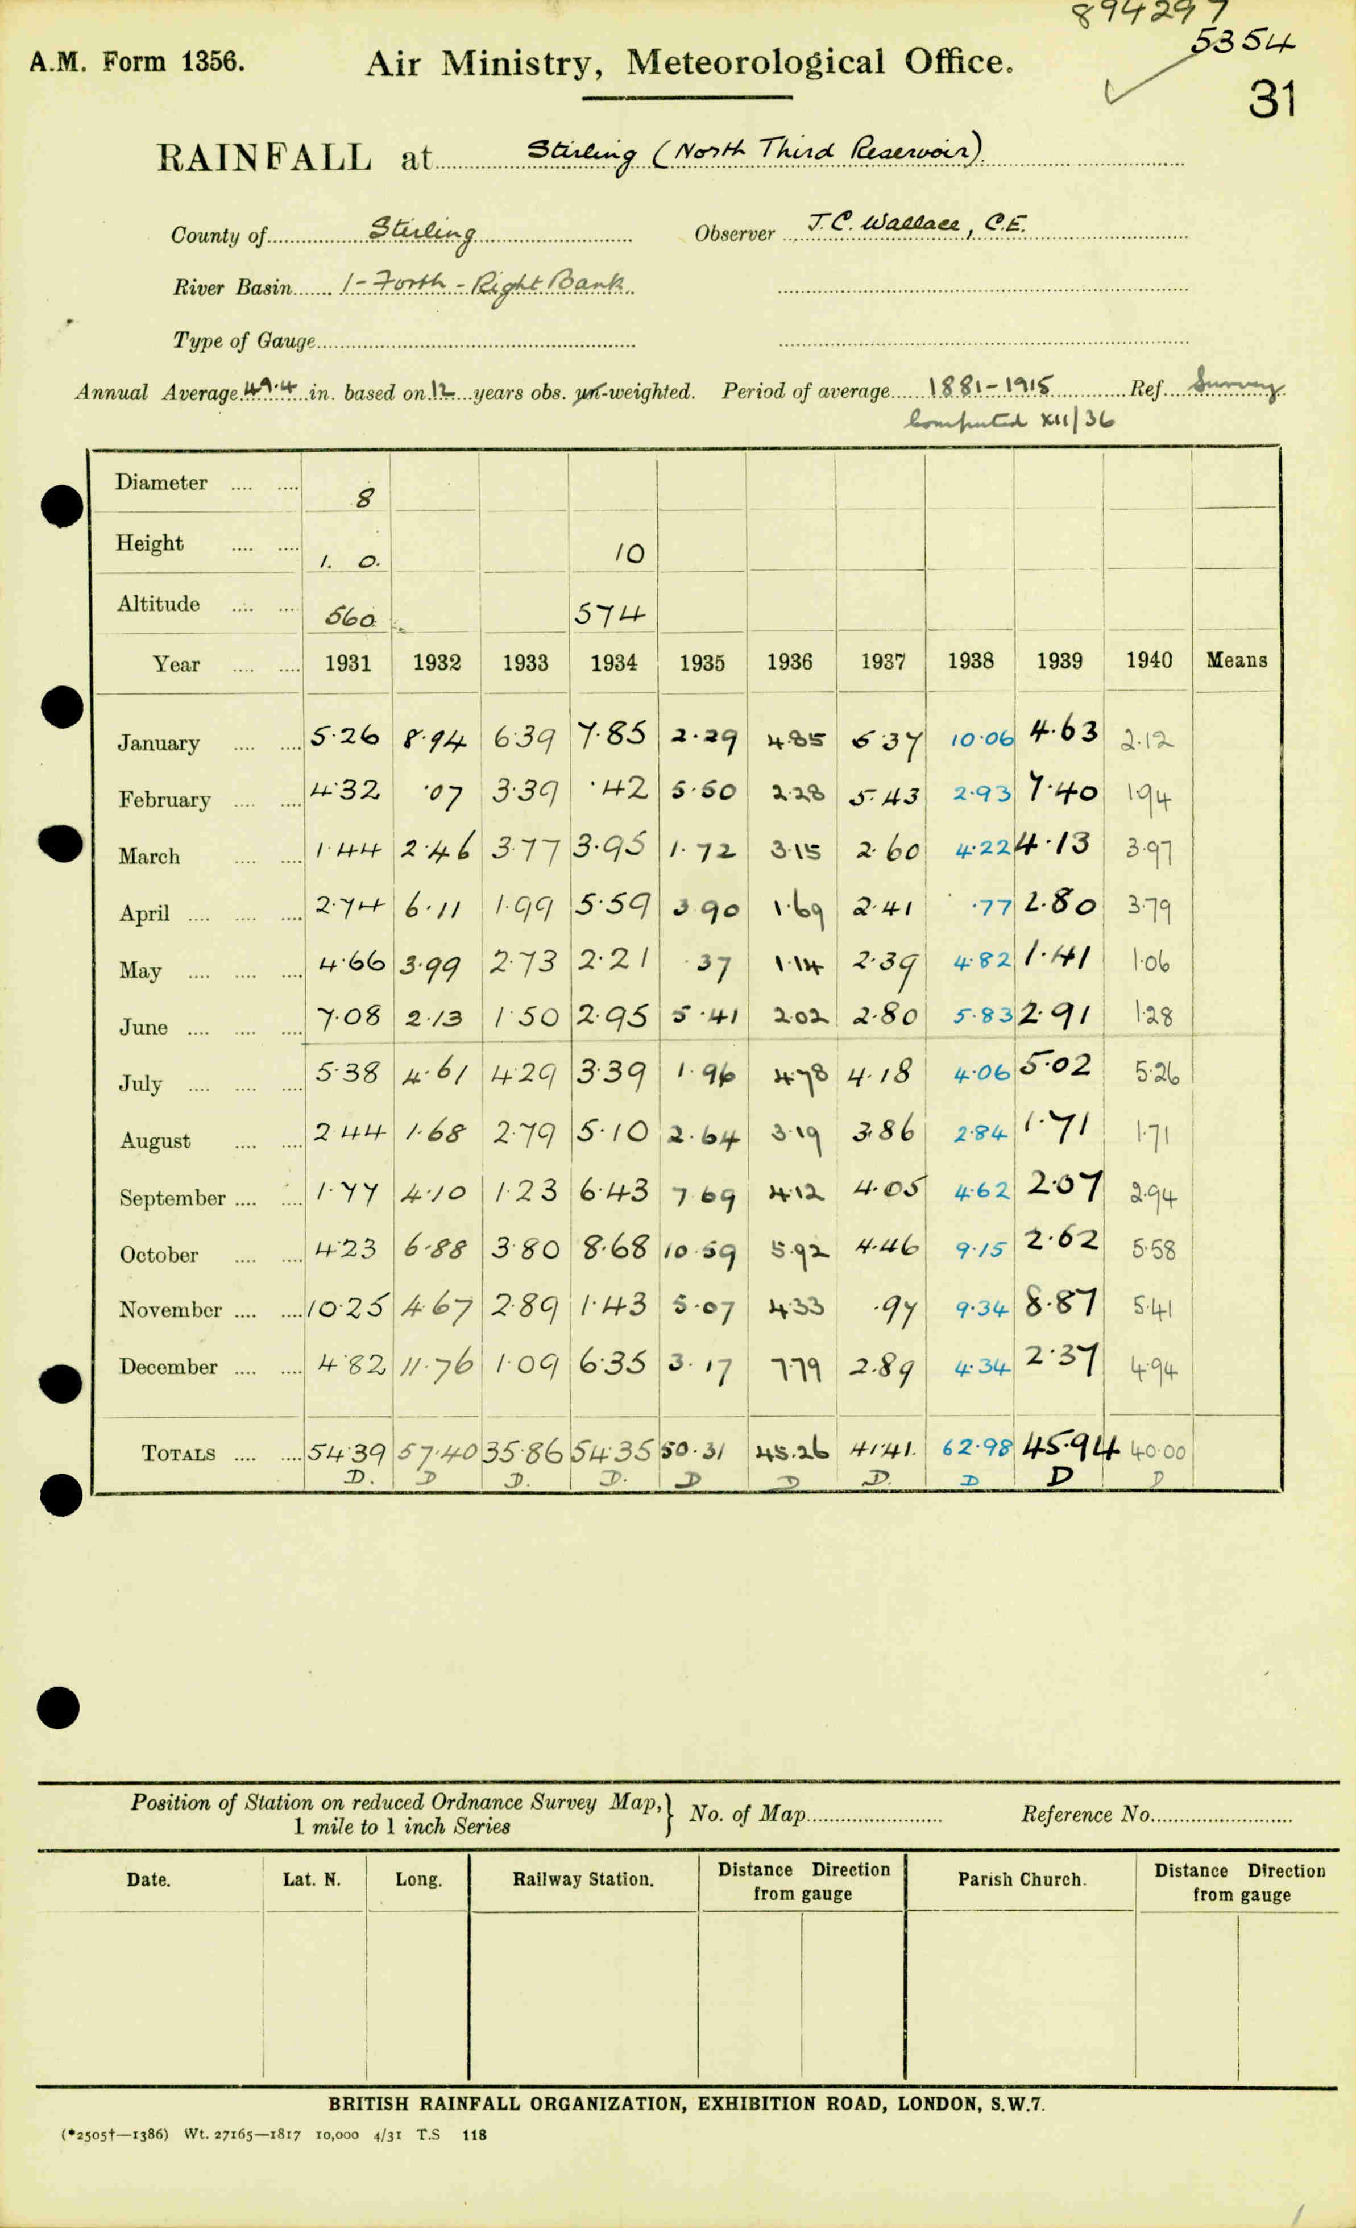 894297
5354
31
A.M. Form 1356.
Air Ministry, Meteorological Office.
RAINFALL at Stirling (North Third Reservoir).
County of Stirling Observer J.C. Wallace, C.E.
River Basin 1 - Forth - Right Bank
Type of Gauge
Annual Average 49.4 in. based on 12 years obs. un-weighted. Period of average 1881-1915 Ref. Survey
Computed XII/36
Diameter 8
Height 1. 0. 10
Altitude 560 574
Year 1931 1932 1933 1934 1935 1936 1937 1938 1939 1940 Means
January 5.26 8.94 6.39 7.85 2.29 4.85 5.37 10.06 4.63 2.12
February 4.32 .07 3.39 .42 5.50 2.28 5.43 2.93 7.40 1.94
March 1.44 2.46 3.77 3.95 1.72 3.15 2.60 4.22 4.13 3.97
April 2.74 6.11 1.99 5.59 3.90 1.69 2.41 .77 2.80 3.79
May 4.66 3.99 2.73 2.21 .37 1.14 2.39 4.82 1.41 1.06
June 7.08 2.13 1.50 2.95 5.41 2.02 2.80 5.83 2.91 1.28
July 5.38 4.61 4.29 3.39 1.96 4.78 4.18 4.06 5.02 5.26
August 2.44 1.68 2.79 5.10 2.64 3.19 3.86 2.84 1.71 1.71
September 1.77 4.10 1.23 6.43 7.69 4.12 4.05 4.62 2.07 2.94
October 4.23 6.88 3.80 8.68 10.59 5.92 4.46 9.15 2.62 5.58
November 10.25 4.67 2.89 1.43 5.07 4.33 .97 9.34 8.87 5.41
December 4.82 11.76 1.09 6.35 3.17 7.79 2.89 4.34 2.37 4.94
TOTALS 54.39 57.40 35.86 54.35 50.31 45.26 41.41 62.98 45.94 40.00
D. D D. D. D D D. D D D
Position of Station on reduced Ordnance Survey Map, } No. of Map Reference No.
1 mile to 1 inch Series
Date. Lat. N. Long. Railway Station. Distance Direction from gauge Parish Church. Distance Direction from gauge
BRITISH RAINFALL ORGANIZATION, EXHIBITION ROAD, LONDON, S.W.7.
(*2505†—1386) Wt. 27165—1817 10,000 4/31 T.S 118